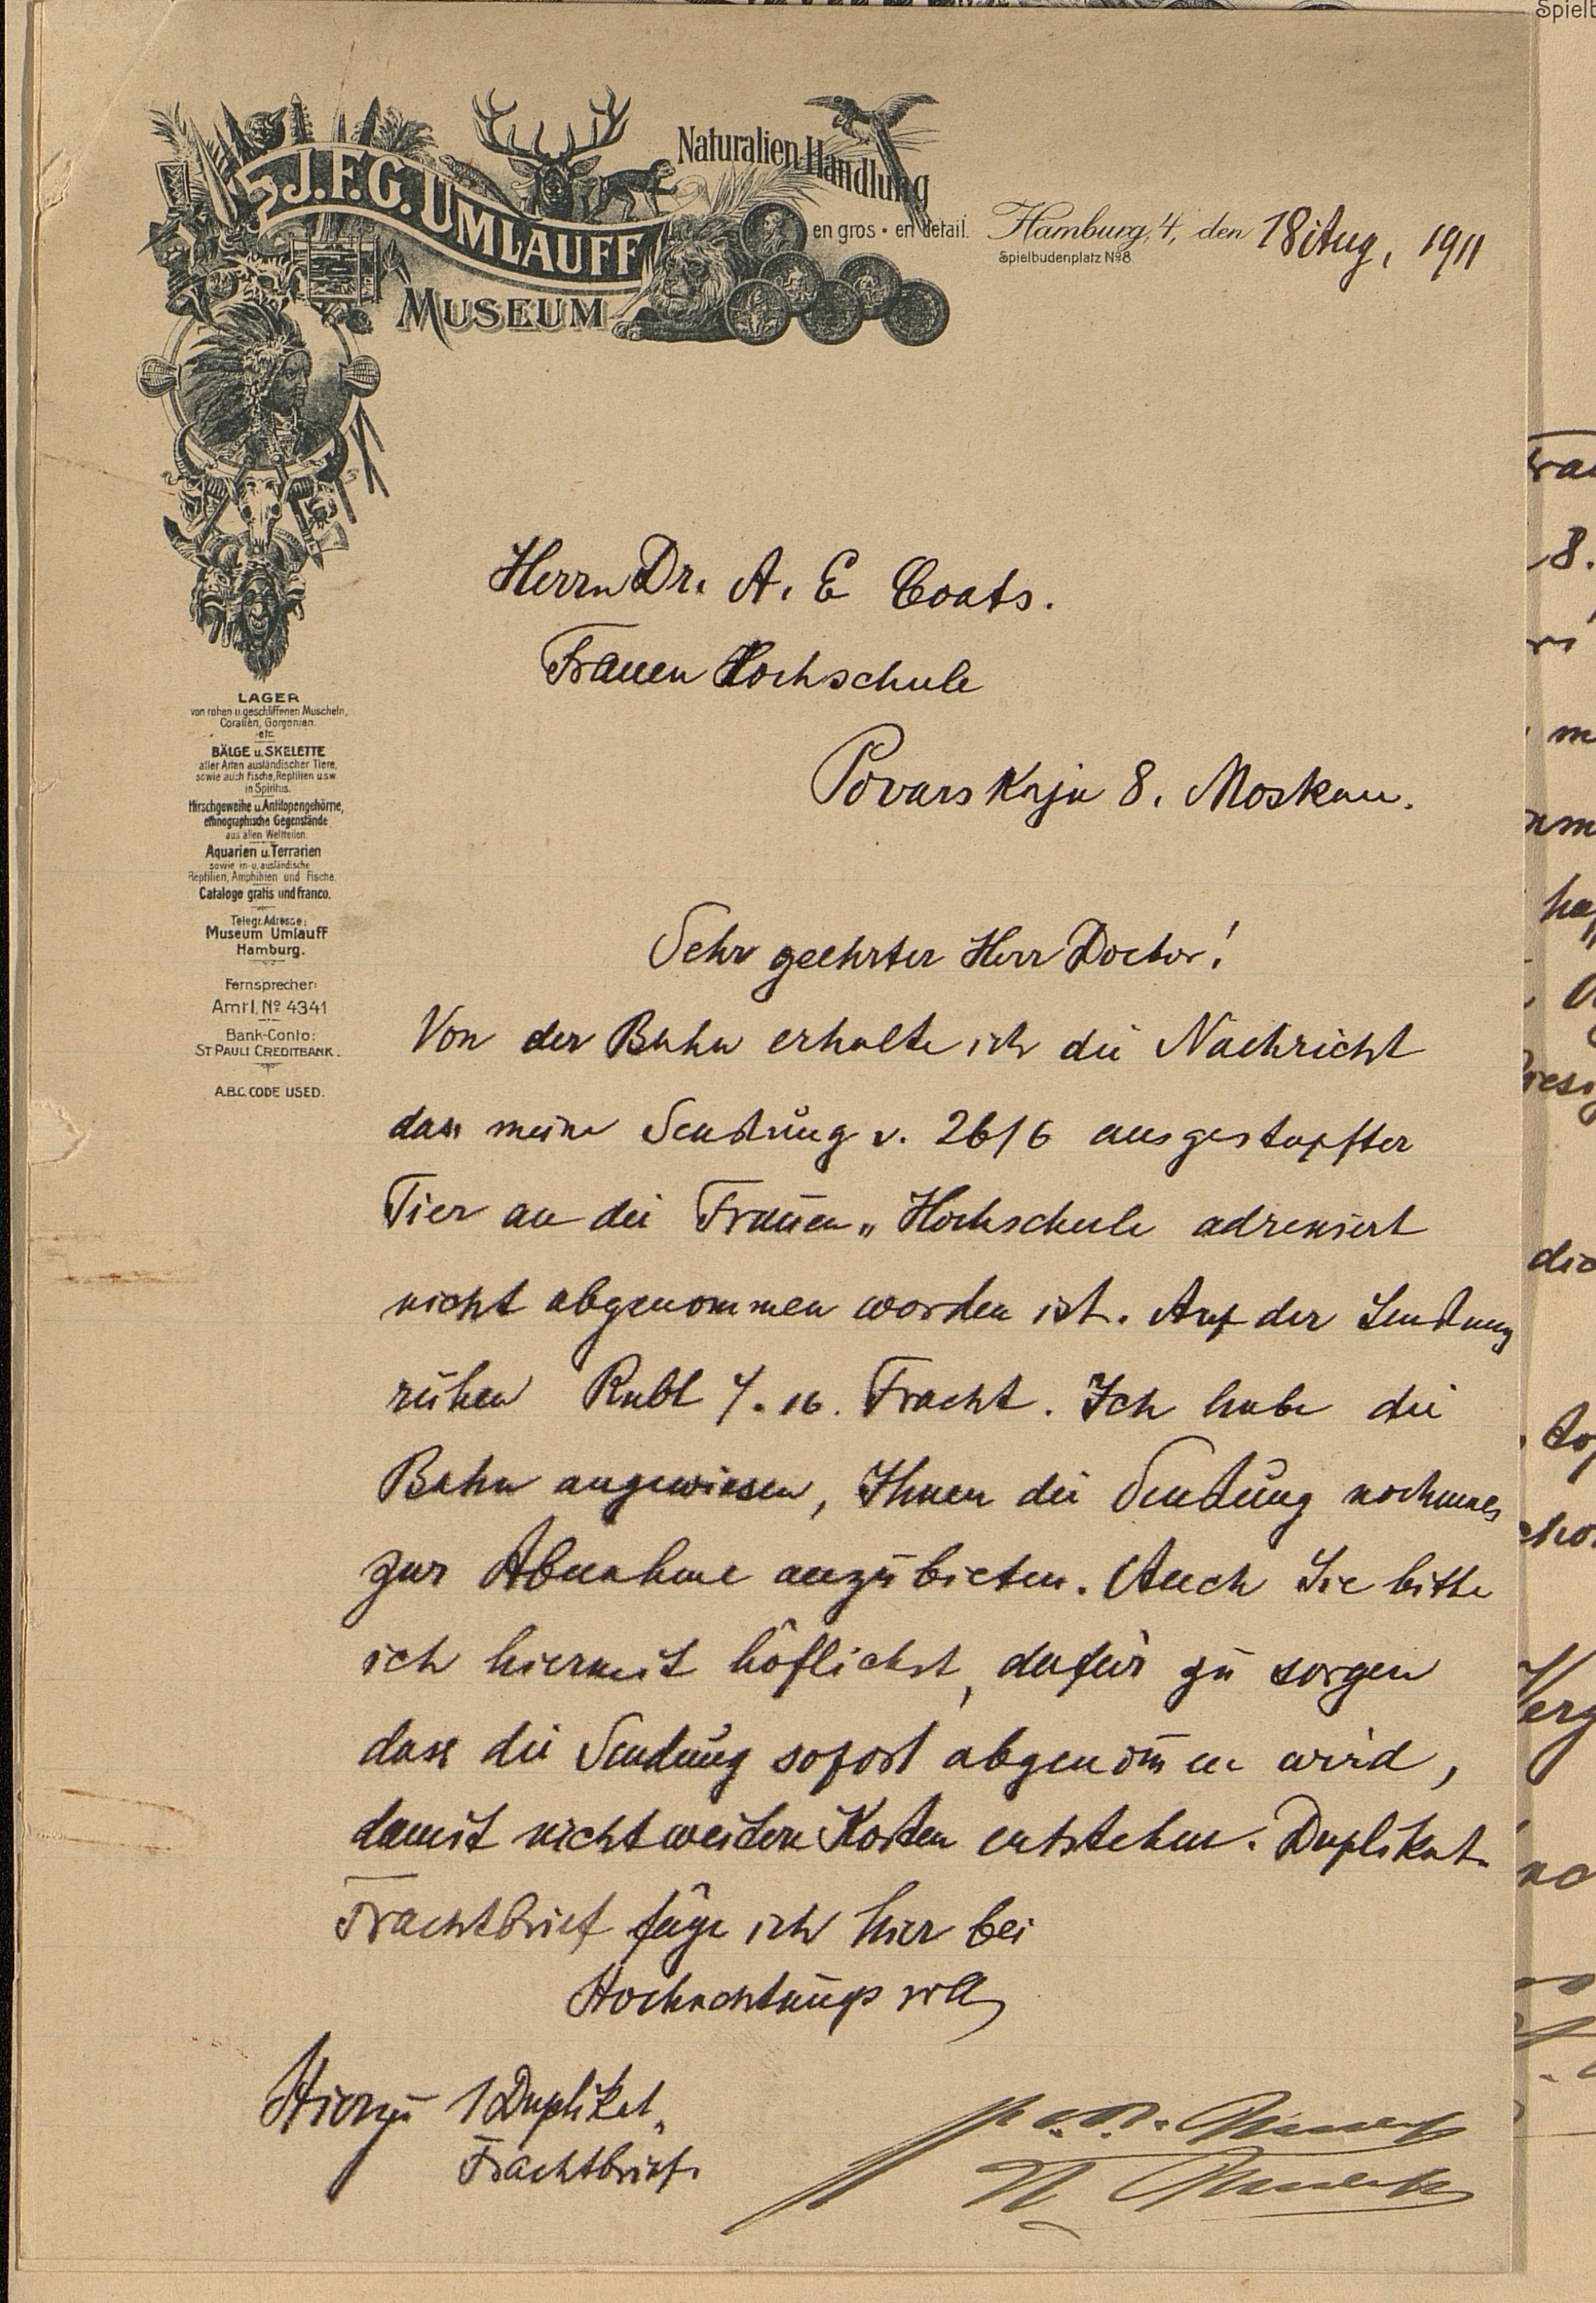 J.F.G. UMLAUFF
MUSEUM
Naturalien-Handlung
en gros • en detail.
Hamburg, 4, den 18 Aug, 1911
Spielbudenplatz No 8.
LAGER
von rohen u. geschliffenen Muscheln,
Corallen, Gorgonien.
etc.
BÄLGE u. SKELETTE
aller Arten ausländischer Tiere,
sowie auch Fische, Reptilien u.s.w.
in Spiritus.
Hirschgeweihe u. Antilopengehörne,
ethnographische Gegenstände
aus allen Weltteilen.
Aquarien u. Terrarien
sowie in- u. ausländische
Reptilien, Amphibien und Fische.
Cataloge gratis und franco.
Telegr. Adresse:
Museum Umlauff
Hamburg.
Fernsprecher:
Amt I. No 4341
Bank-Conto:
ST PAULI CREDITBANK.
A.B.C. CODE USED.
Herrn Dr. A. E Coats.
Frauen Hochschule
Povarskaja 8. Moskau.
Sehr geehrter Herr Doctor!
Von der Bahn erhalte ich die Nachricht
dass meine Sendung v. 26/6 ausgestopfter
Tier an die Frauen„ Hochschule adressiert
nicht abgenommen worden ist. Auf der Sendung
ruhen Rubl 4.16. Fracht. Ich habe die
Bahn angewiesen, Ihnen die Sendung nochmals
zur Abnahme anzubieten. Auch Sie bitte
ich hiermit höflichst, dafür zu sorgen
dass die Sendung sofort abgenom̄en wird,
damit nicht weitere Kosten entstehen. Duplikat-
Frachtbrief füge ich hier bei
Hochachtungsvoll
Hierzu 1 Duplikat„
Frachtbrief.
J.F.G. Umlauff
W Umlauff